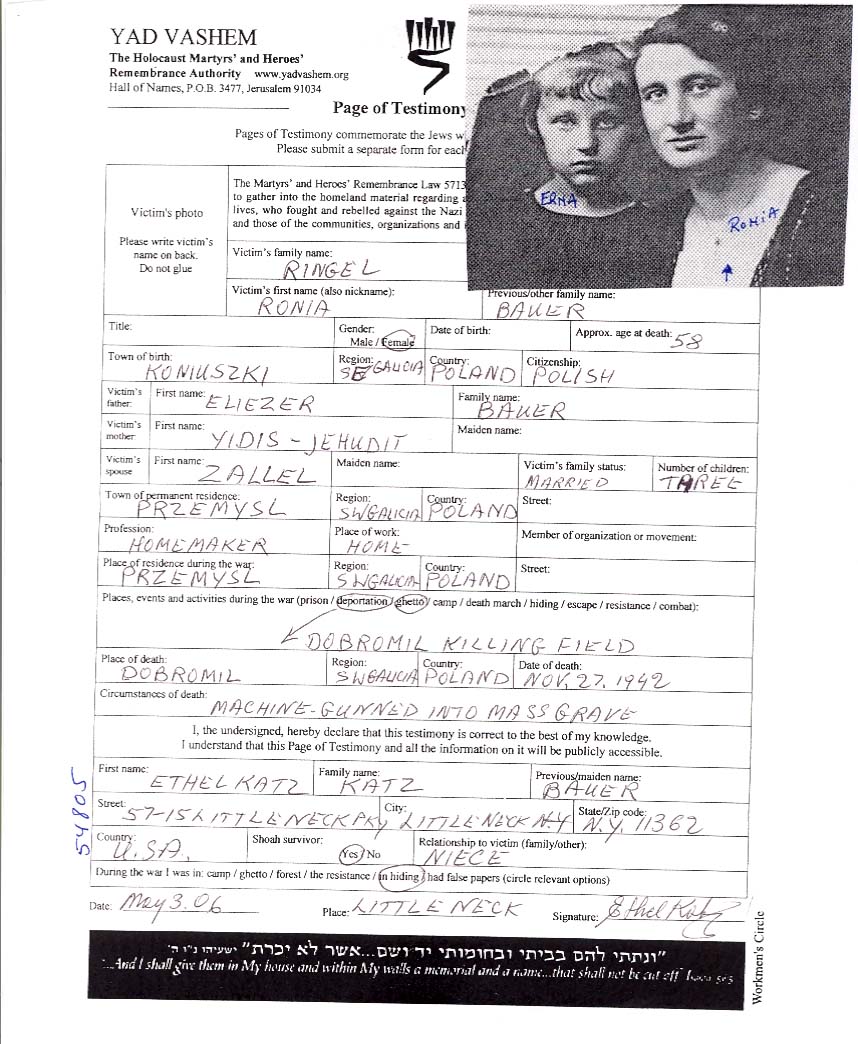 YAD VASHEM
The Holocaust Martyrs' and Heroes'
Remembrance Authority www.yadvashem.org
Hall of Names, P.O.B. 3477, Jerusalem 91034
Page of Testimony
Pages of Testimony commemorate the Jews w
Please submit a separate form for each
ERNA
RONIA
Victim's photo
Please write victim's
name on back.
Do not glue
The Martyrs' and Heroes' Remembrance Law 5713
to gather into the homeland material regarding
lives, who fought and rebelled against the Nazi
and those of the communities, organizations and
Victim's family name:
RINGEL
Victim's first name (also nickname): Previous/other family name:
RONIA BAUER
Title: Gender: Male / Female Date of birth: Approx. age at death: 58
Town of birth: Region: Country: Citizenship:
KONIUSZKI SE GALICIA POLAND POLISH
Victim's father: First name: ELIEZER Family name: BAUER
Victim's mother: First name: YIDIS - JEHUDIT Maiden name:
Victim's spouse First name: ZALLEL Maiden name: Victim's family status: MARRIED Number of children: THREE
Town of permanent residence: Region: Country: Street:
PRZEMYSL SWGALICIA POLAND
Profession: Place of work: Member of organization or movement:
HOMEMAKER HOME
Place of residence during the war: Region: Country: Street:
PRZEMYSL SWGALICIA POLAND
Places, events and activities during the war (prison / deportation / ghetto / camp / death march / hiding / escape / resistance / combat):
DOBROMIL KILLING FIELD
Place of death: Region: Country: Date of death:
DOBROMIL SWGALICIA POLAND NOV, 27. 1942
Circumstances of death:
MACHINE-GUNNED INTO MASS GRAVE
I, the undersigned, hereby declare that this testimony is correct to the best of my knowledge.
I understand that this Page of Testimony and all the information on it will be publicly accessible.
First name: Family name: Previous/maiden name:
ETHEL KATZ KATZ BAUER
Street: City: State/Zip code:
57-15 LITTLE NECK PKY LITTLE NECK N.Y N.Y. 11362
Country: Shoah survivor: Relationship to victim (family/other):
U.S.A. Yes / No NIECE
During the war I was in: camp / ghetto / forest / the resistance / in hiding / had false papers (circle relevant options)
Date: May 3. 06 Place: LITTLE NECK Signature: Ethel Katz
54805
"ונתתי להם בביתי ובחומותי יד ושם...אשר לא יכרת" ישעיהו נ"ו ה'
"...And I shall give them in My house and within My walls a memorial and a name...that shall not be cut off" Isaiah 56:5
Workmen's Circle